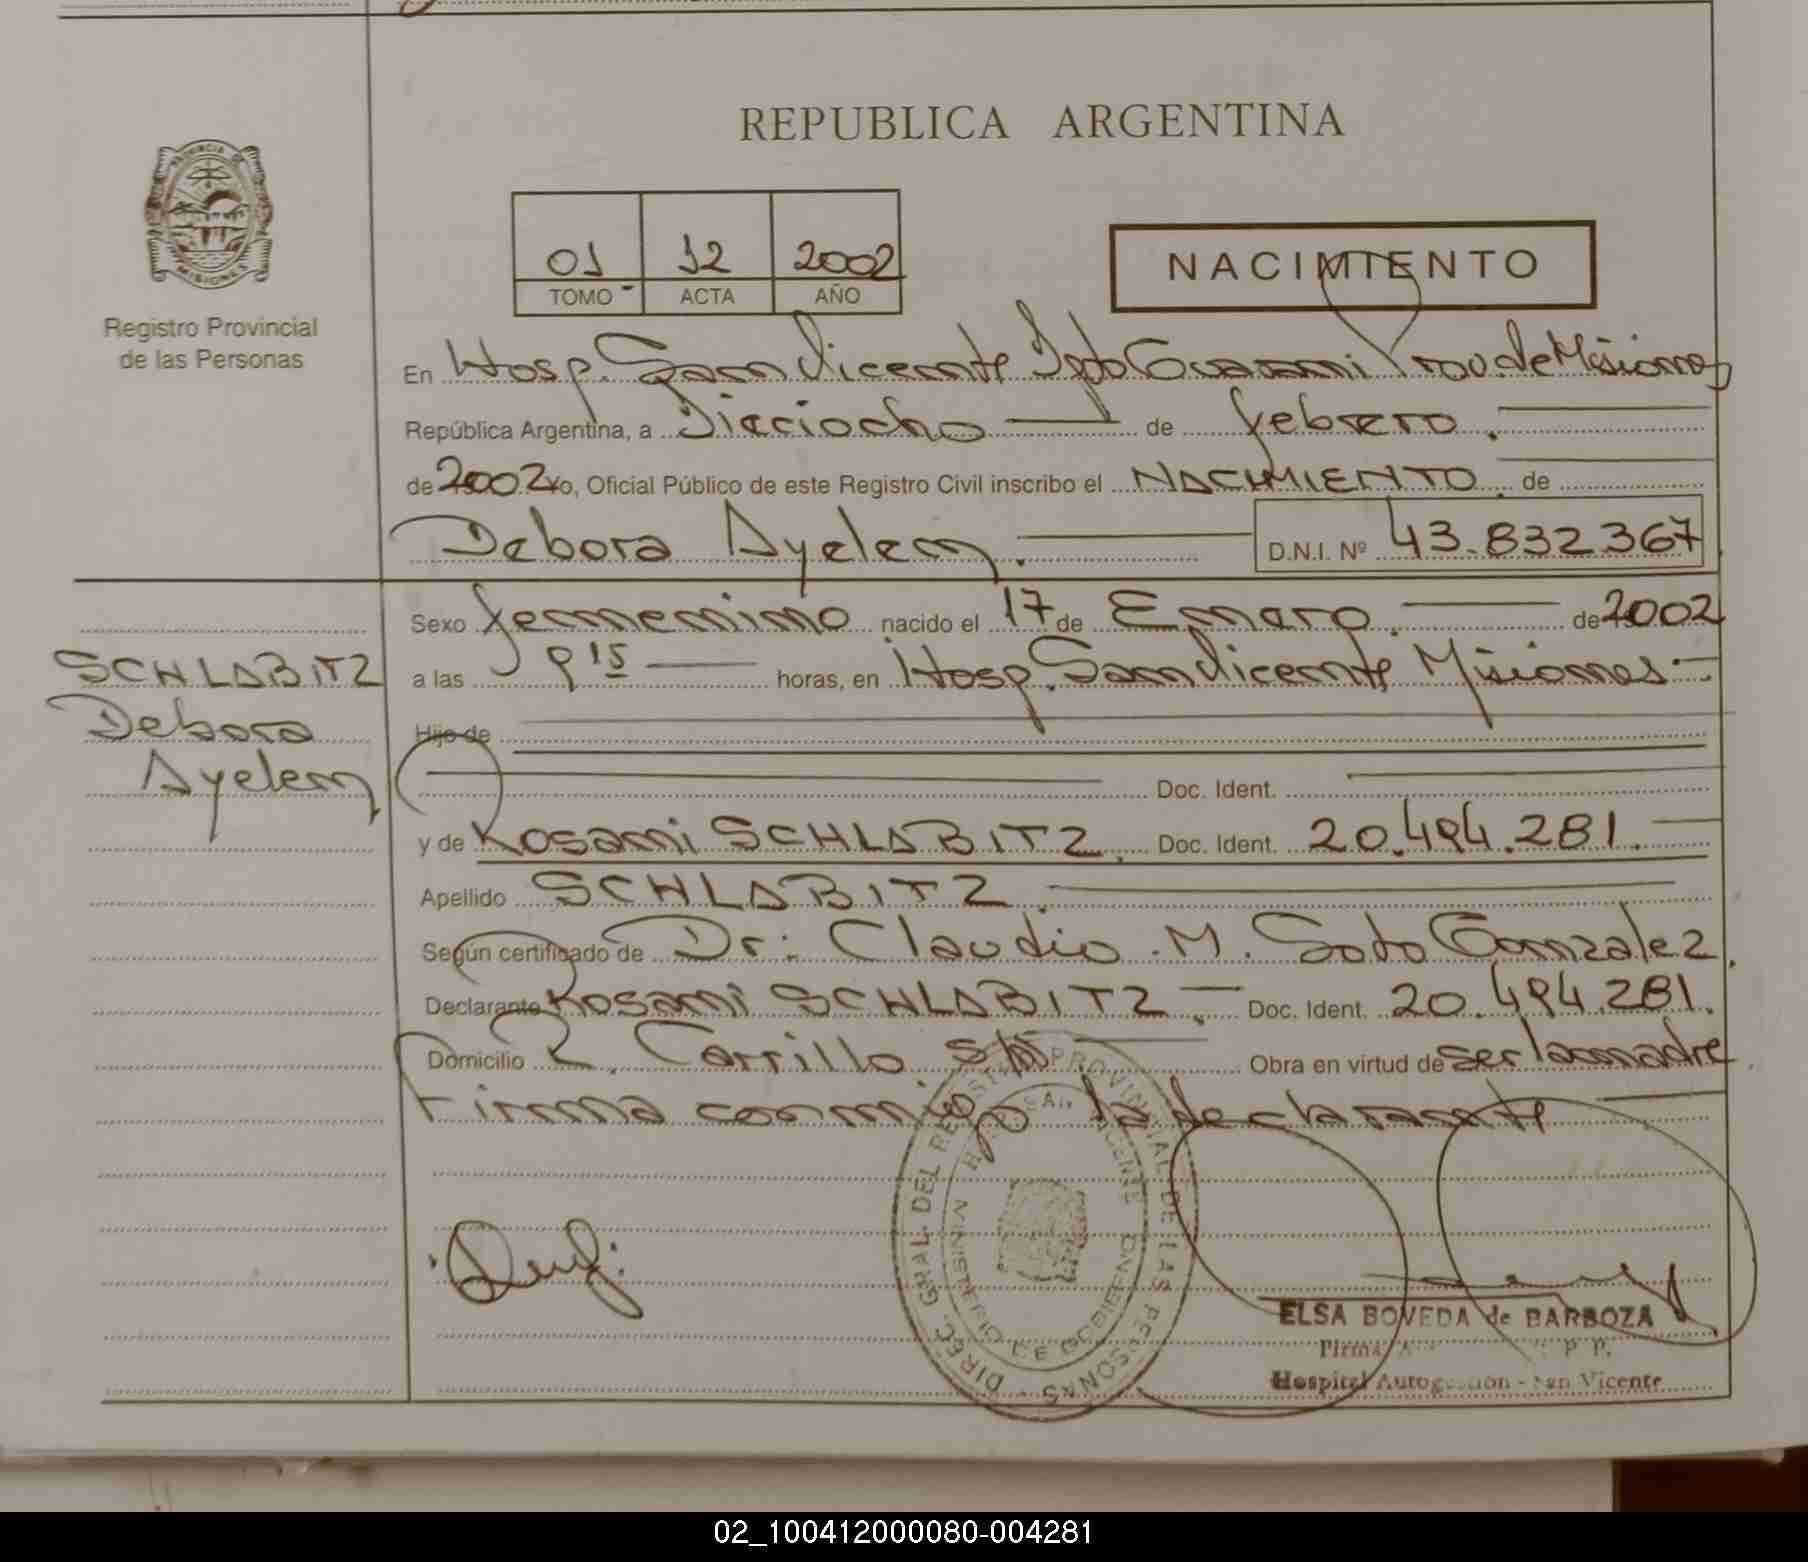 REPUBLICA ARGENTINA
PROVINCIA DE MISIONES
Registro Provincial
de las Personas
01 12 2002
TOMO ACTA AÑO
NACIMIENTO
En Hosp. San Vicente Dpto Guarani Prov. de Misiones
República Argentina, a Dieciocho de febrero.
de 2002 Yo, Oficial Público de este Registro Civil inscribo el NACIMIENTO. de
Debora Ayelen. D.N.I. Nº 43.832367
Sexo femenino nacido el 17 de Enero. de 2002
SCHLABITZ
Debora
Ayelen
a las 9 15 horas, en Hosp. San Vicente Misiones
Hijo de
Doc. Ident.
y de Rosani SCHLABITZ. Doc. Ident. 20.494.281.
Apellido SCHLABITZ.
Según certificado de Dr: Claudio M. Soto Gonzalez.
Declarante Rosani SCHLABITZ. Doc. Ident. 20.494.281.
Domicilio R. Carrillo S/N Obra en virtud de ser la madre.
Firma conmigo la declarante
DIREC. GRAL. DEL REGISTRO PROVINCIAL DE LAS PERSONAS
MINISTERIO DE GOBIERNO
ELSA BOVEDA de BARBOZA
Hospital Autogestion - San Vicente
02_100412000080-004281